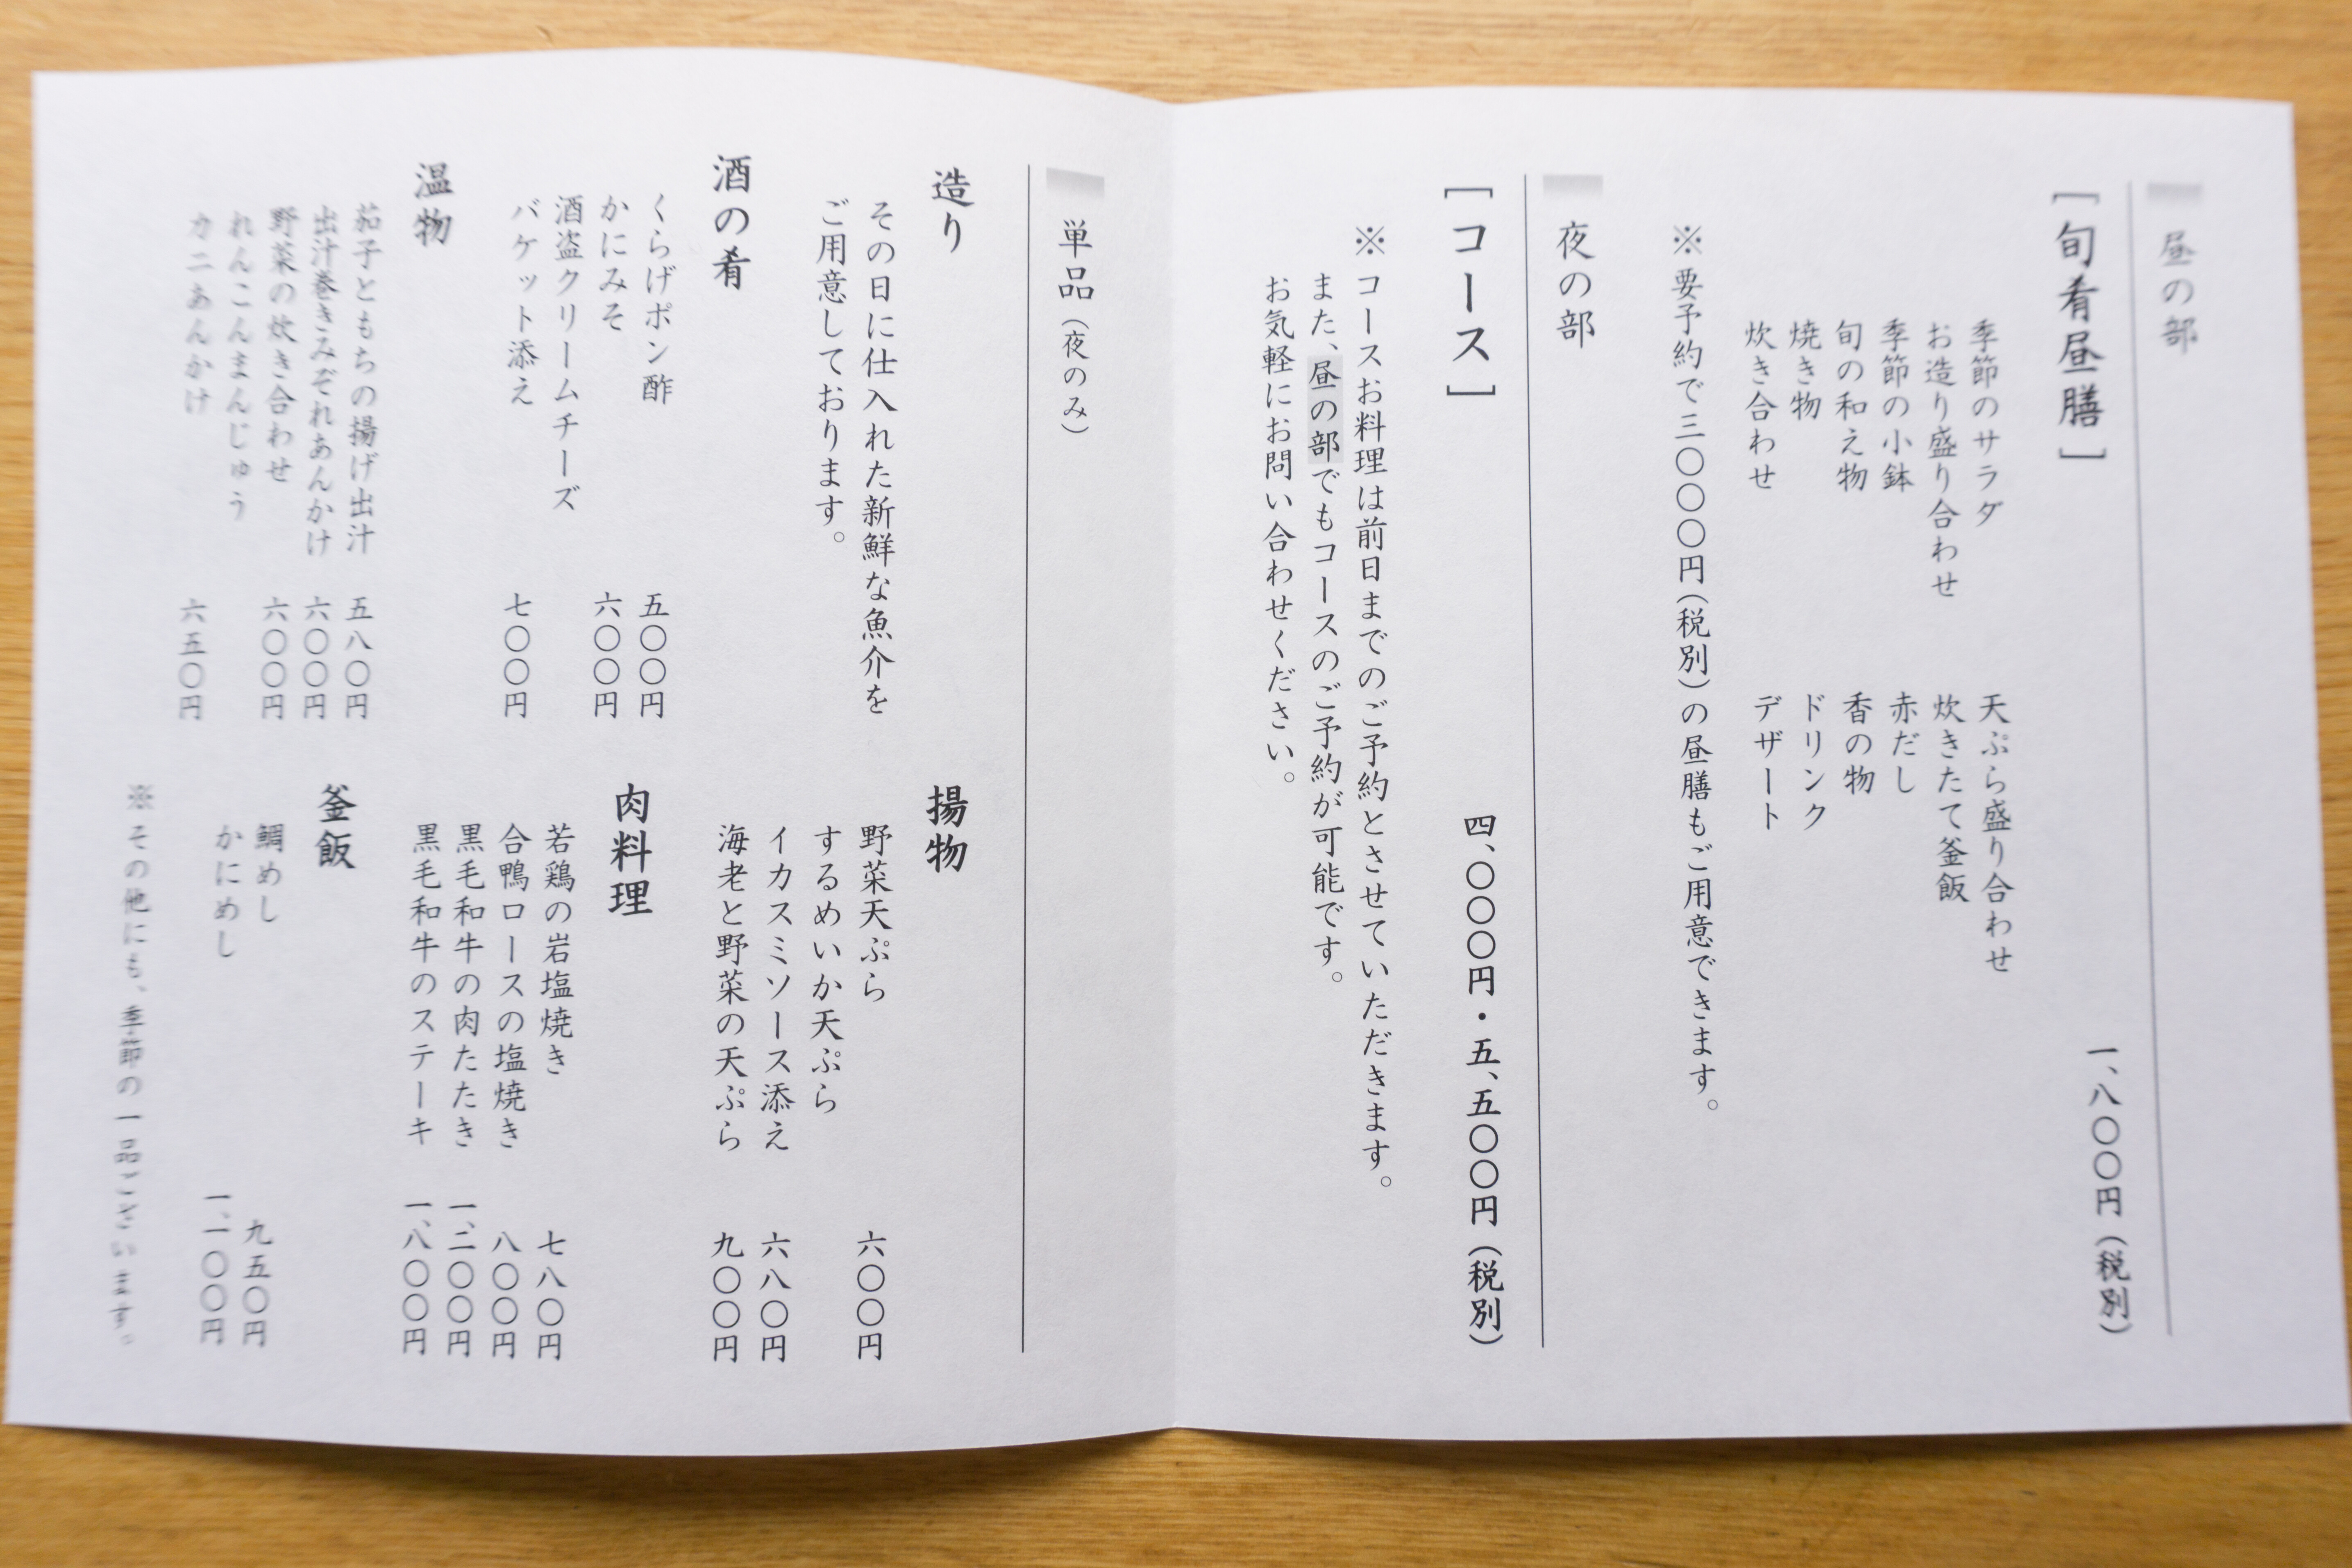 昼の部
[旬肴昼膳]
一、八〇〇円（税別）
季節のサラダ
お造り盛り合わせ
季節の小鉢
旬の和え物
焼き物
炊き合わせ
天ぷら盛り合わせ
炊きたて釜飯
赤だし
香の物
ドリンク
デザート
※要予約で三〇〇〇円（税別）の昼膳もご用意できます。
夜の部
[コース]
四、〇〇〇円・五、五〇〇円（税別）
※コースお料理は前日までのご予約とさせていただきます。
また、昼の部でもコースのご予約が可能です。
お気軽にお問い合わせください。
単品（夜のみ）
造り
その日に仕入れた新鮮な魚介を
ご用意しております。
酒の肴
くらげポン酢 五〇〇円
かにみそ 六〇〇円
酒盗クリームチーズ
バケット添え 七〇〇円
温物
茄子ともちの揚げ出汁 五八〇円
出汁巻きみぞれあんかけ 六〇〇円
野菜の炊き合わせ 六〇〇円
れんこんまんじゅう
カニあんかけ 六五〇円
揚物
野菜天ぷら 六〇〇円
するめいか天ぷら
イカスミソース添え 六八〇円
海老と野菜の天ぷら 九〇〇円
肉料理
若鶏の岩塩焼き 七八〇円
合鴨ロースの塩焼き 八〇〇円
黒毛和牛の肉たたき 一、二〇〇円
黒毛和牛のステーキ 一、八〇〇円
釜飯
鯛めし 九五〇円
かにめし 一、一〇〇円
※その他にも、季節の一品ございます。